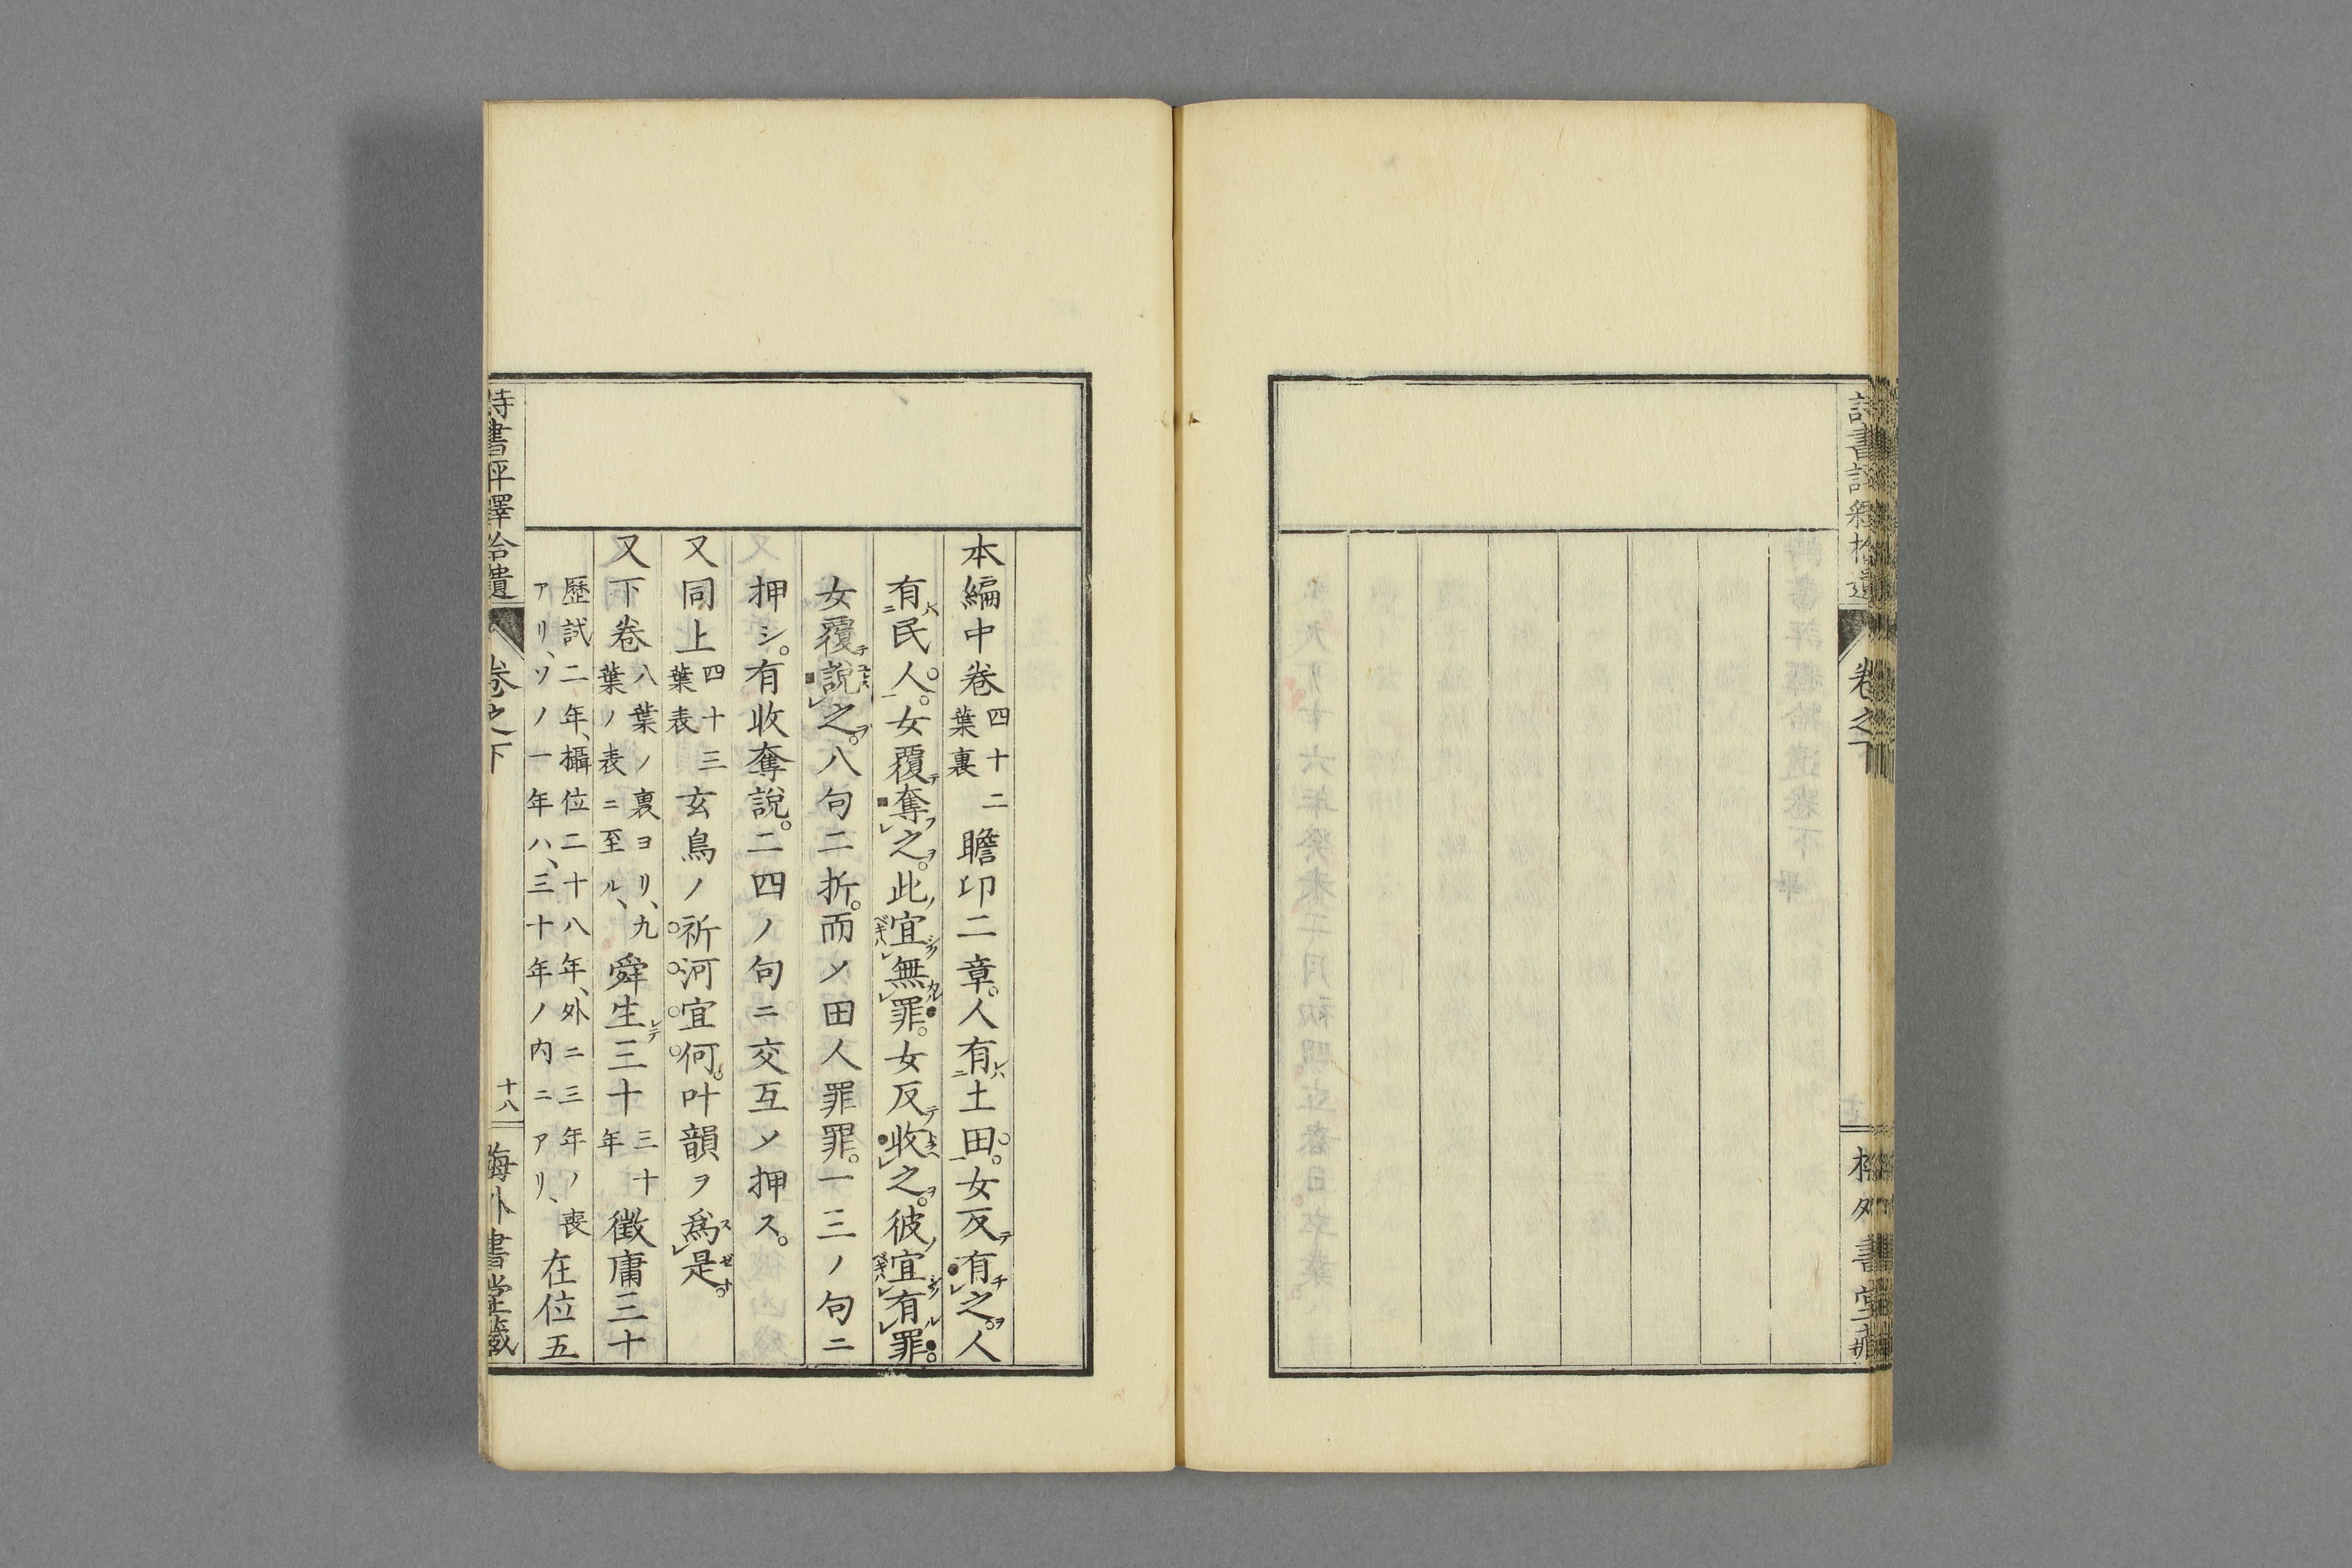 書
卷之下
書堂
本編中卷四十二葉裏瞻卬二章。人有土田。女反有之。人
有民人。女覆奪之。此宜無罪。女反收之。彼宜有罪
女覆説之。八句二折。而〆田人罪罪。一三ノ句ニ
押シ。有收奪説。二四ノ句ニ交互〆押ス。
又同上四十三葉表玄鳥ノ祈河宜何。叶韻ヲ爲是。
又下卷八葉ノ裏ヨリ、九葉ノ表ニ至ル、舜生三十三十年徵庸三十
歷試二年、攝位二十八年、外ニ三年ノ喪アリ、ソノ一年ハ、三十年ノ内ニアリ、在位五
詩書評釋拾遺 卷之下 十八 梅外書堂藏